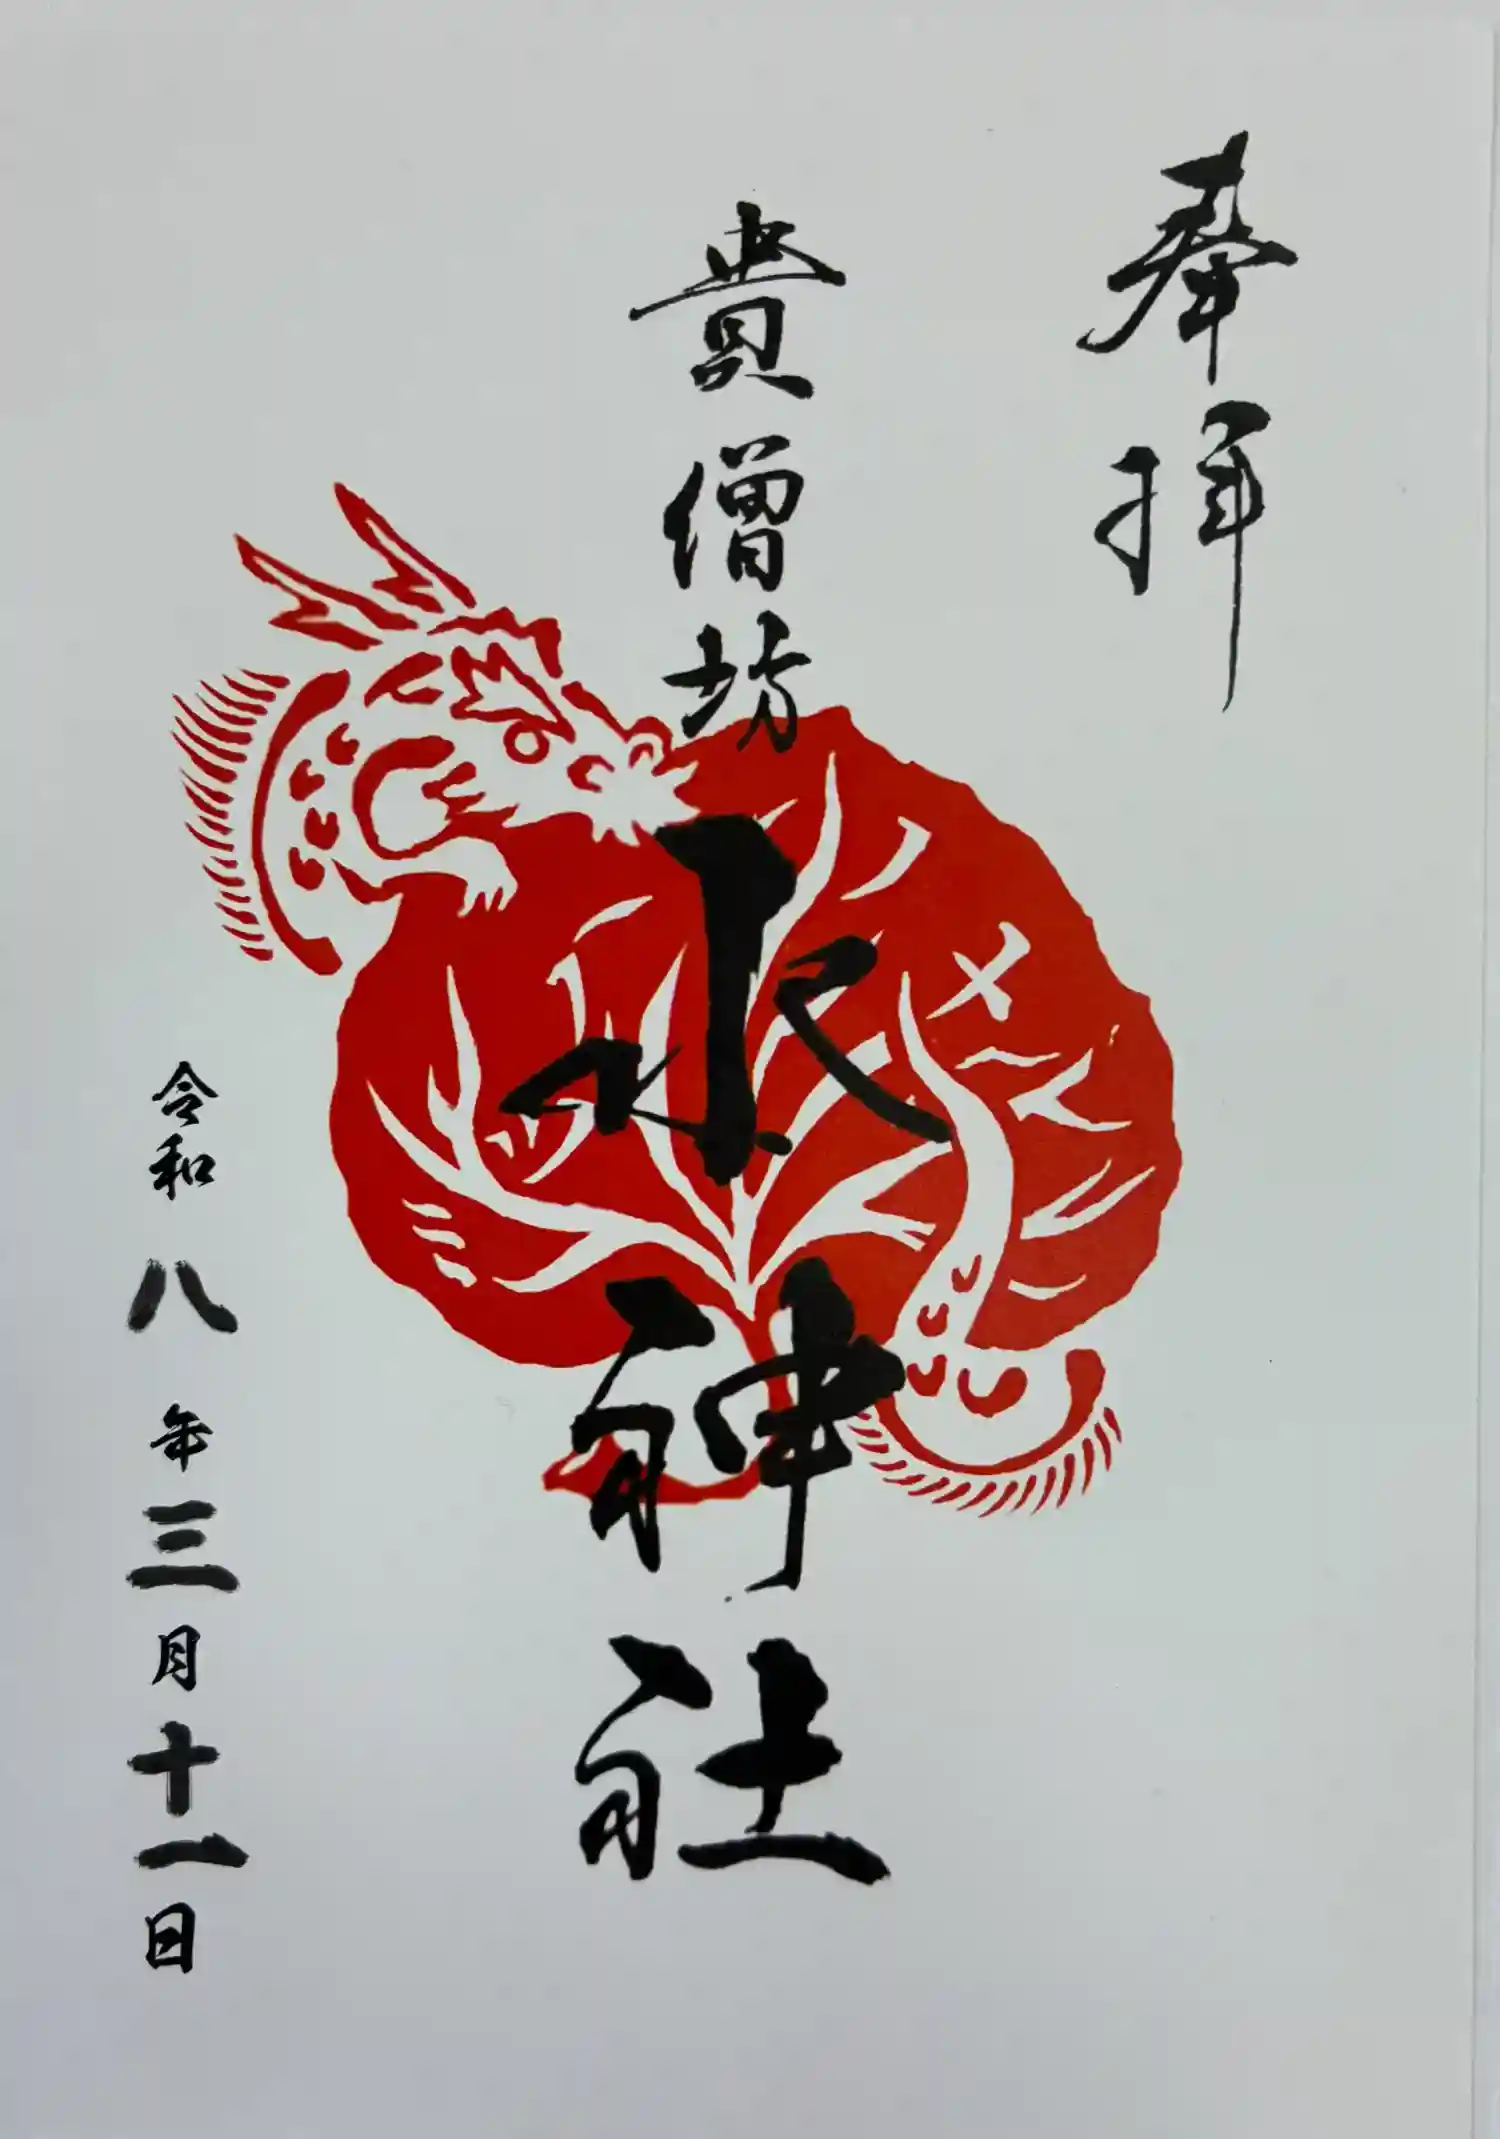 奉拝
貴僧坊
水神社
令和八年三月十一日